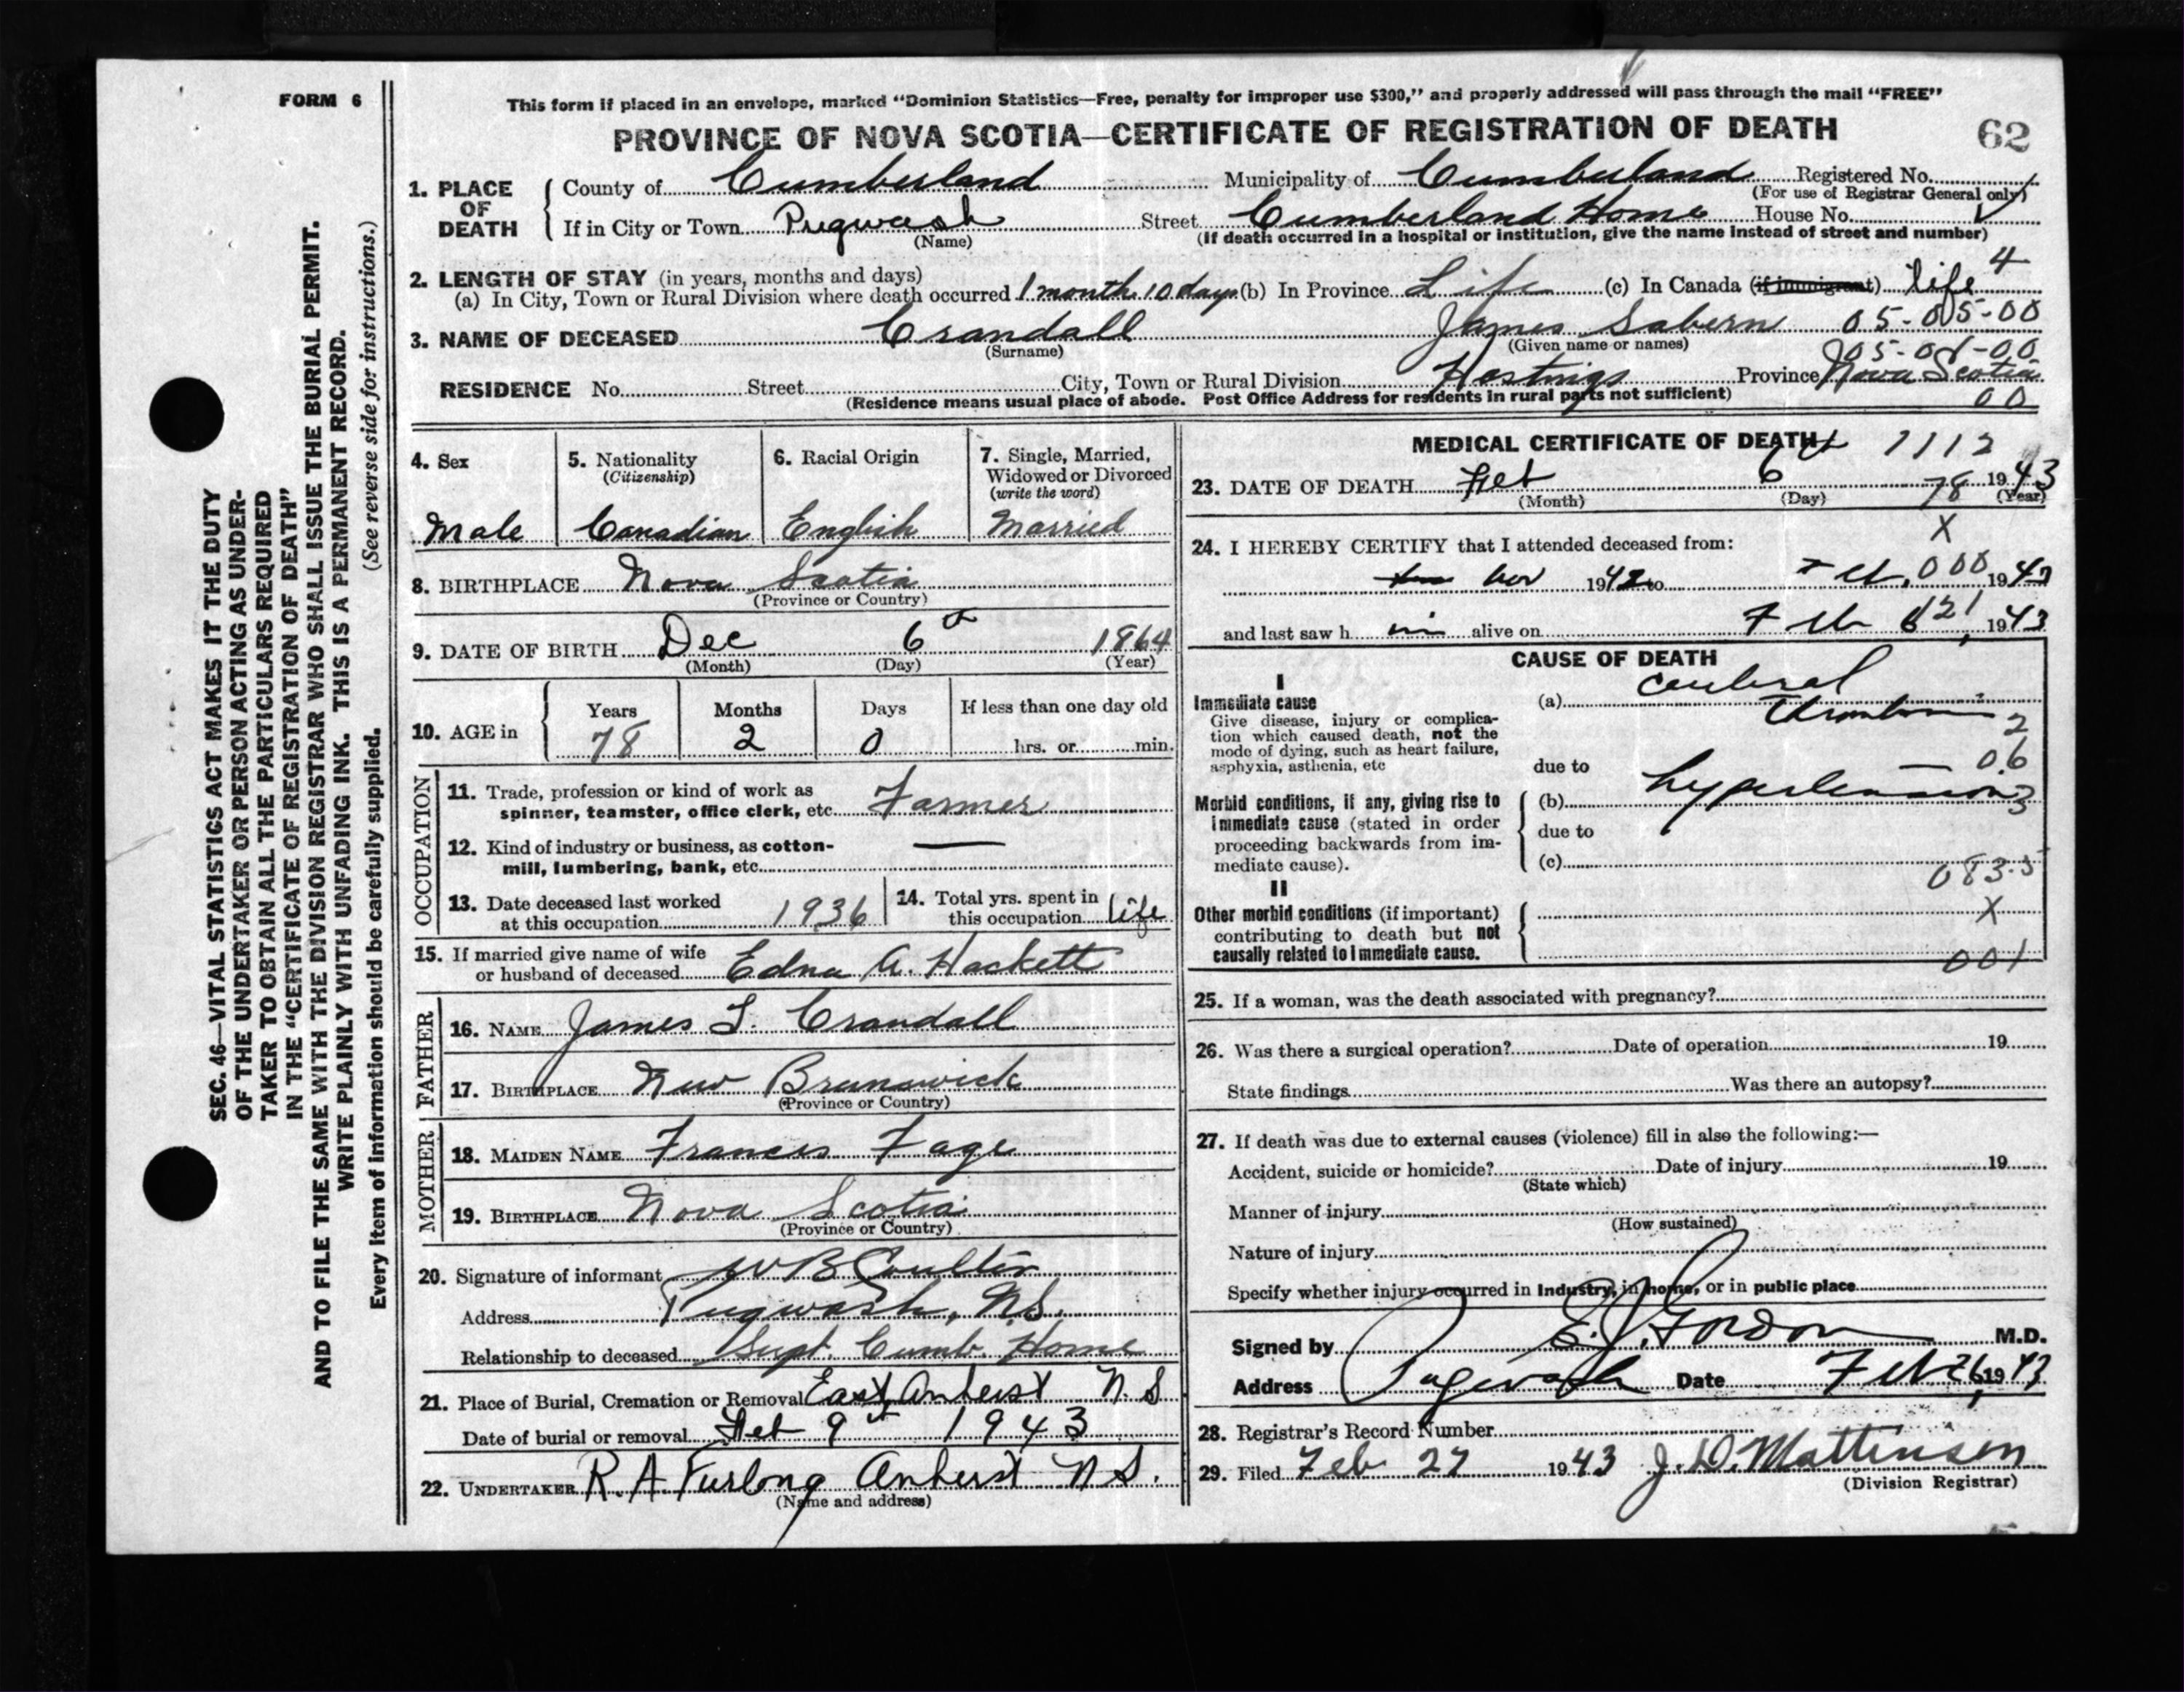 FORM 6
This form if placed in an envelope, marked "Dominion Statistics—Free, penalty for improper use $300," and properly addressed will pass through the mail "FREE"
PROVINCE OF NOVA SCOTIA—CERTIFICATE OF REGISTRATION OF DEATH
62
SEC. 46—VITAL STATISTICS ACT MAKES IT THE DUTY
OF THE UNDERTAKER OR PERSON ACTING AS UNDER-
TAKER TO OBTAIN ALL THE PARTICULARS REQUIRED
IN THE "CERTIFICATE OF REGISTRATION OF DEATH"
AND TO FILE THE SAME WITH THE DIVISION REGISTRAR WHO SHALL ISSUE THE BURIAL PERMIT.
WRITE PLAINLY WITH UNFADING INK. THIS IS A PERMANENT RECORD.
Every item of information should be carefully supplied. (See reverse side for instructions.)
1. PLACE OF DEATH
County of Cumberland Municipality of Cumberland Registered No.
(For use of Registrar General only)
If in City or Town Pugwash Street Cumberland Home House No.
(Name) (If death occurred in a hospital or institution, give the name instead of street and number)
2. LENGTH OF STAY (in years, months and days) 4
(a) In City, Town or Rural Division where death occurred 1 month 10 days (b) In Province Life (c) In Canada (if immigrant) life
3. NAME OF DECEASED Crandall James Sabern 05-005-00
(Surname) (Given name or names)
RESIDENCE No. Street City, Town or Rural Division Hastings Province Nova Scotia
(Residence means usual place of abode. Post Office Address for residents in rural parts not sufficient) 00
4. Sex
Male
5. Nationality
(Citizenship)
Canadian
6. Racial Origin
English
7. Single, Married,
Widowed or Divorced
(write the word)
Married
8. BIRTHPLACE Nova Scotia
(Province or Country)
9. DATE OF BIRTH Dec 6th 1864
(Month) (Day) (Year)
10. AGE in
Years Months Days If less than one day old
78 2 0 hrs. or min.
OCCUPATION
11. Trade, profession or kind of work as
spinner, teamster, office clerk, etc. Farmer
12. Kind of industry or business, as cotton-
mill, lumbering, bank, etc. —
13. Date deceased last worked
at this occupation 1936
14. Total yrs. spent in
this occupation life
15. If married give name of wife
or husband of deceased Edna A. Hackett
FATHER
16. NAME James S. Crandall
17. BIRTHPLACE New Brunswick
(Province or Country)
MOTHER
18. MAIDEN NAME Frances Fage
19. BIRTHPLACE Nova Scotia
(Province or Country)
20. Signature of informant W B Coulter
Address Pugwash, N.S.
Relationship to deceased Supt. Cumb. Home
21. Place of Burial, Cremation or Removal East Amherst N.S
Date of burial or removal Feb 9th 1943
22. UNDERTAKER R. A Furlong Amherst N S.
(Name and address)
MEDICAL CERTIFICATE OF DEATH 1112
23. DATE OF DEATH Feb 6th 1943
(Month) (Day) (Year)
78
X
24. I HEREBY CERTIFY that I attended deceased from:
Nov 1942 to Feb, 000 1943
and last saw h im alive on Feb 6 21, 1943
CAUSE OF DEATH
I
Immediate cause
Give disease, injury or complica-
tion which caused death, not the
mode of dying, such as heart failure,
asphyxia, asthenia, etc
(a) Cerebral
Thrombosis 2
due to 06
Morbid conditions, if any, giving rise to
immediate cause (stated in order
proceeding backwards from im-
mediate cause).
(b) hypertension 3
due to
(c)
083.5
II
Other morbid conditions (if important)
contributing to death but not
causally related to immediate cause.
X
001
25. If a woman, was the death associated with pregnancy?
26. Was there a surgical operation? Date of operation 19
State findings Was there an autopsy?
27. If death was due to external causes (violence) fill in also the following:—
Accident, suicide or homicide? Date of injury 19
(State which)
Manner of injury
(How sustained)
Nature of injury
Specify whether injury occurred in Industry, in home, or in public place
Signed by E. J. Gordon M.D.
Address Pugwash Date Feb 26, 1943
28. Registrar's Record Number
29. Filed Feb 27 1943 J. D. Mattinson
(Division Registrar)